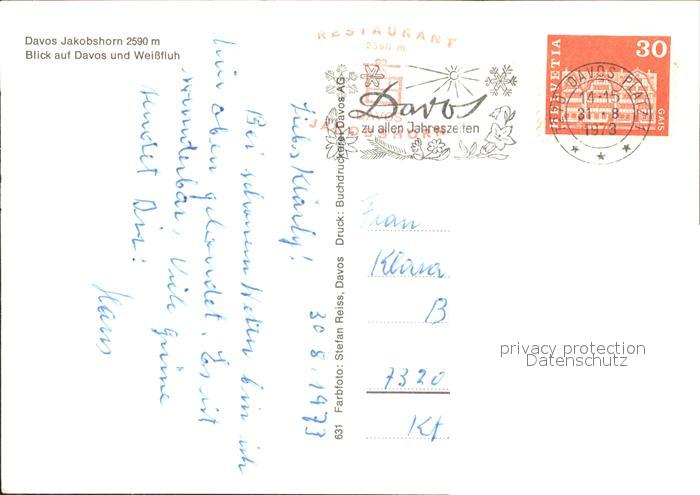 Davos Jakobshorn 2590 m
Blick auf Davos und Weißfluh
RESTAURANT
2590 m
DAVOS
JAKOBSHORN
Davos
zu allen Jahreszeiten
HELVETIA
30
GAIS
DAVOS PLATZ 1
14-15
31.-8
1973
631 Farbfoto: Stefan Reiss, Davos Druck: Buchdruckerei Davos AG
30.8.1973
Liebs Klärly!
Bei schönem Wetter bin ich
hier oben gelandet. Es ist
wunderbar, viele Grüsse
sendet Dir!
Hans
Frau
Klara
B
7320
Kt
privacy protection
Datenschutz